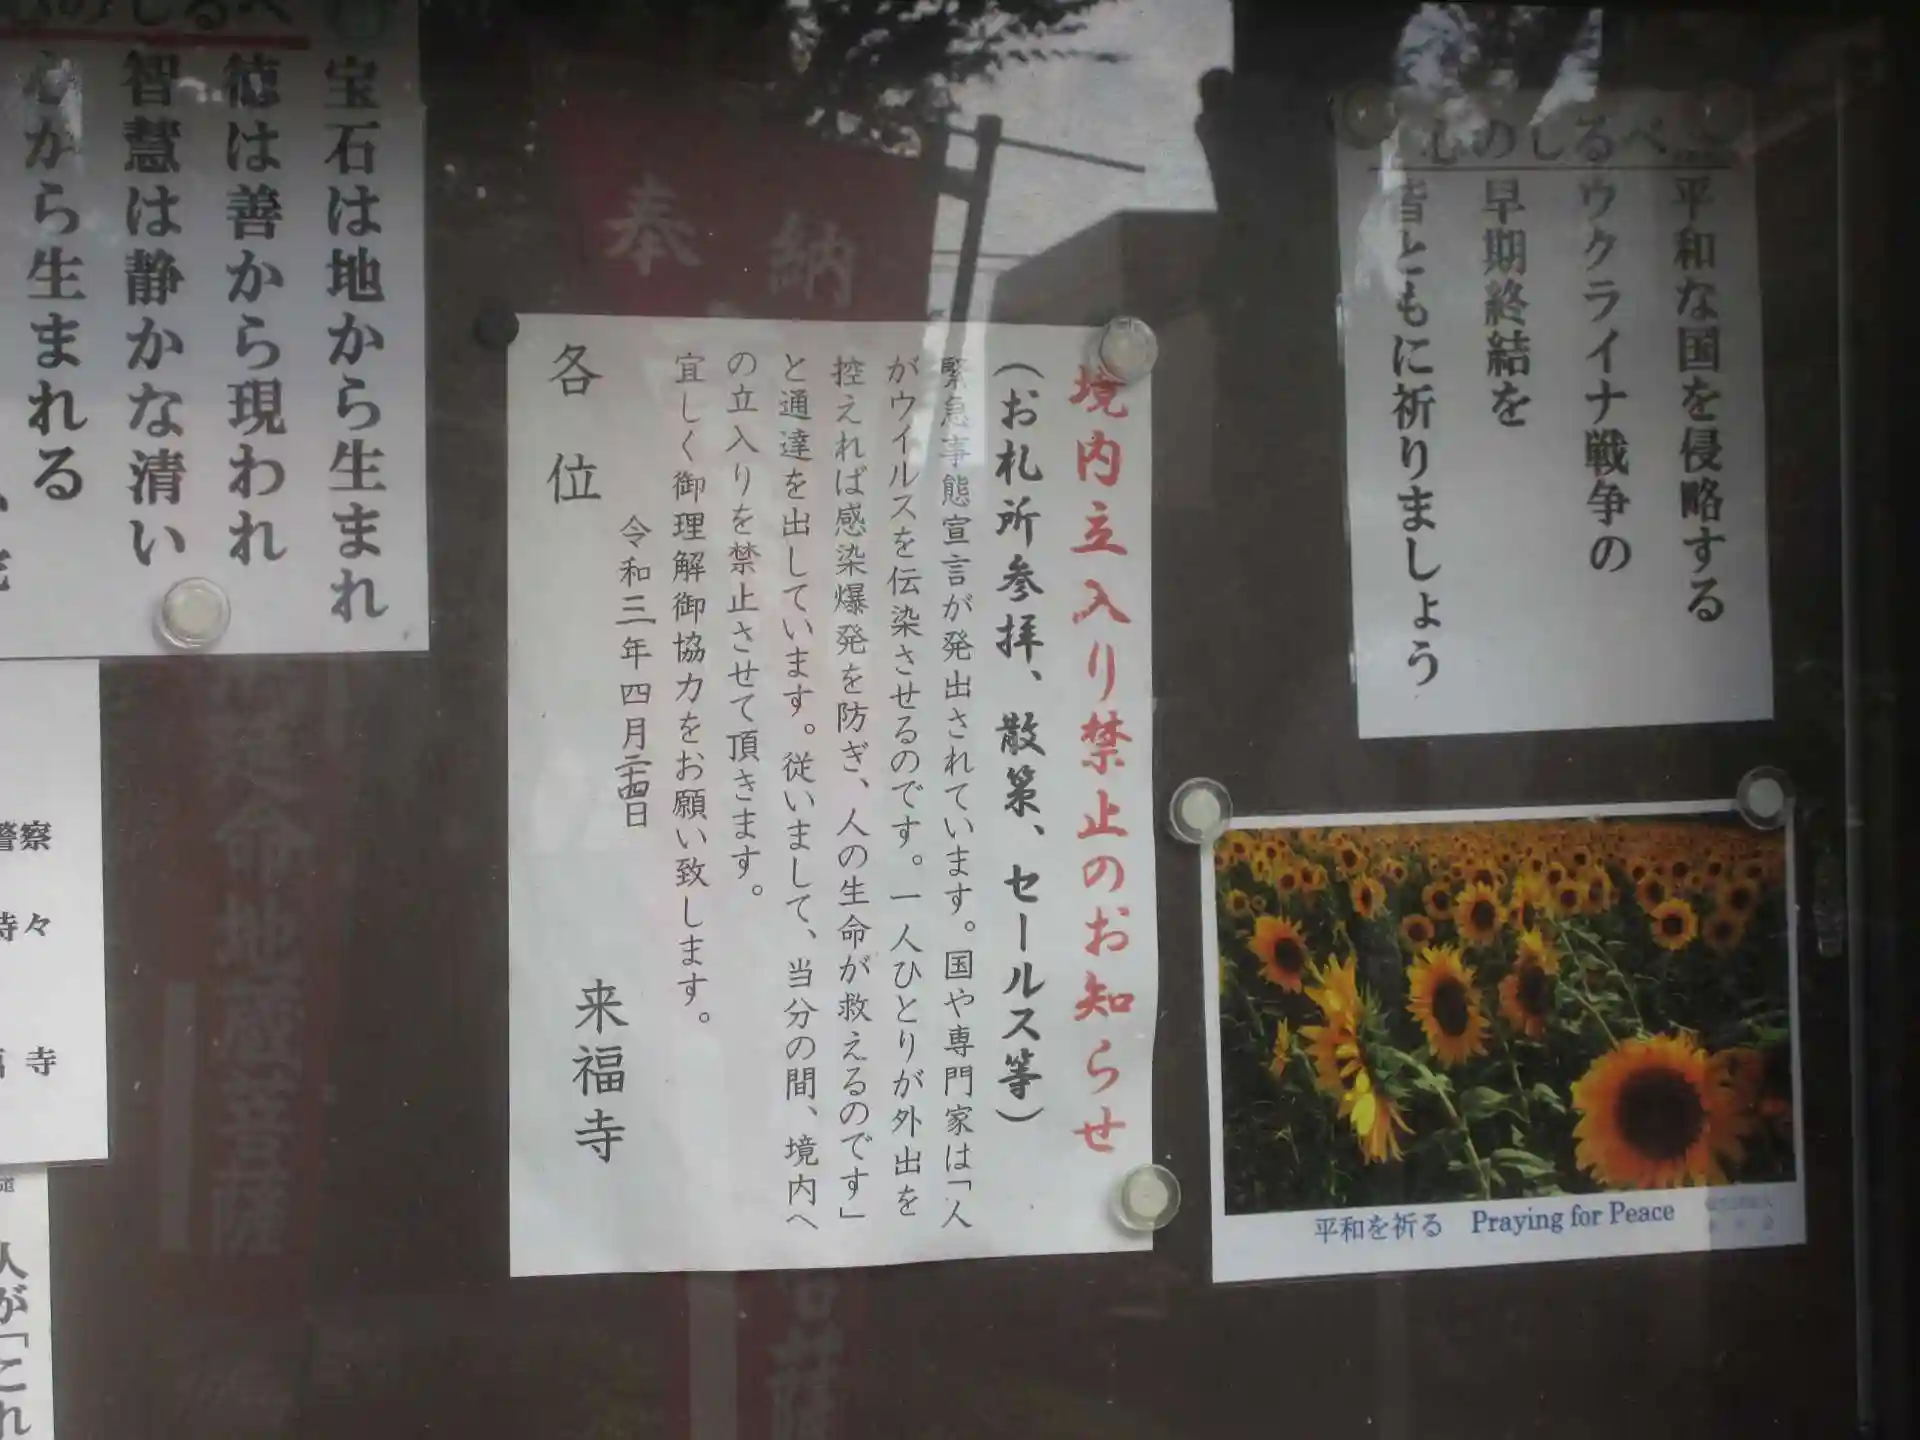 心のしるべ
平和な国を侵略する
ウクライナ戦争の
早期終結を
皆ともに祈りましょう
平和を祈る Praying for Peace
境内立入り禁止のお知らせ
(お札所参拝、散策、セールス等)
緊急事態宣言が発出されています。国や専門家は「人
がウイルスを伝染させるのです。一人ひとりが外出を
控えれば感染爆発を防ぎ、人の生命が救えるのです」
と通達を出しています。従いまして、当分の間、境内へ
の立入りを禁止させて頂きます。
宜しく御理解御協力をお願い致します。
令和三年四月二十四日
各位
来福寺
奉納
のしるべ
宝石は地から生まれ
徳は善から現われ
智慧は静かな清い
心から生まれる
警察
時々
寺
人が「これ
延命地蔵菩薩
菩薩